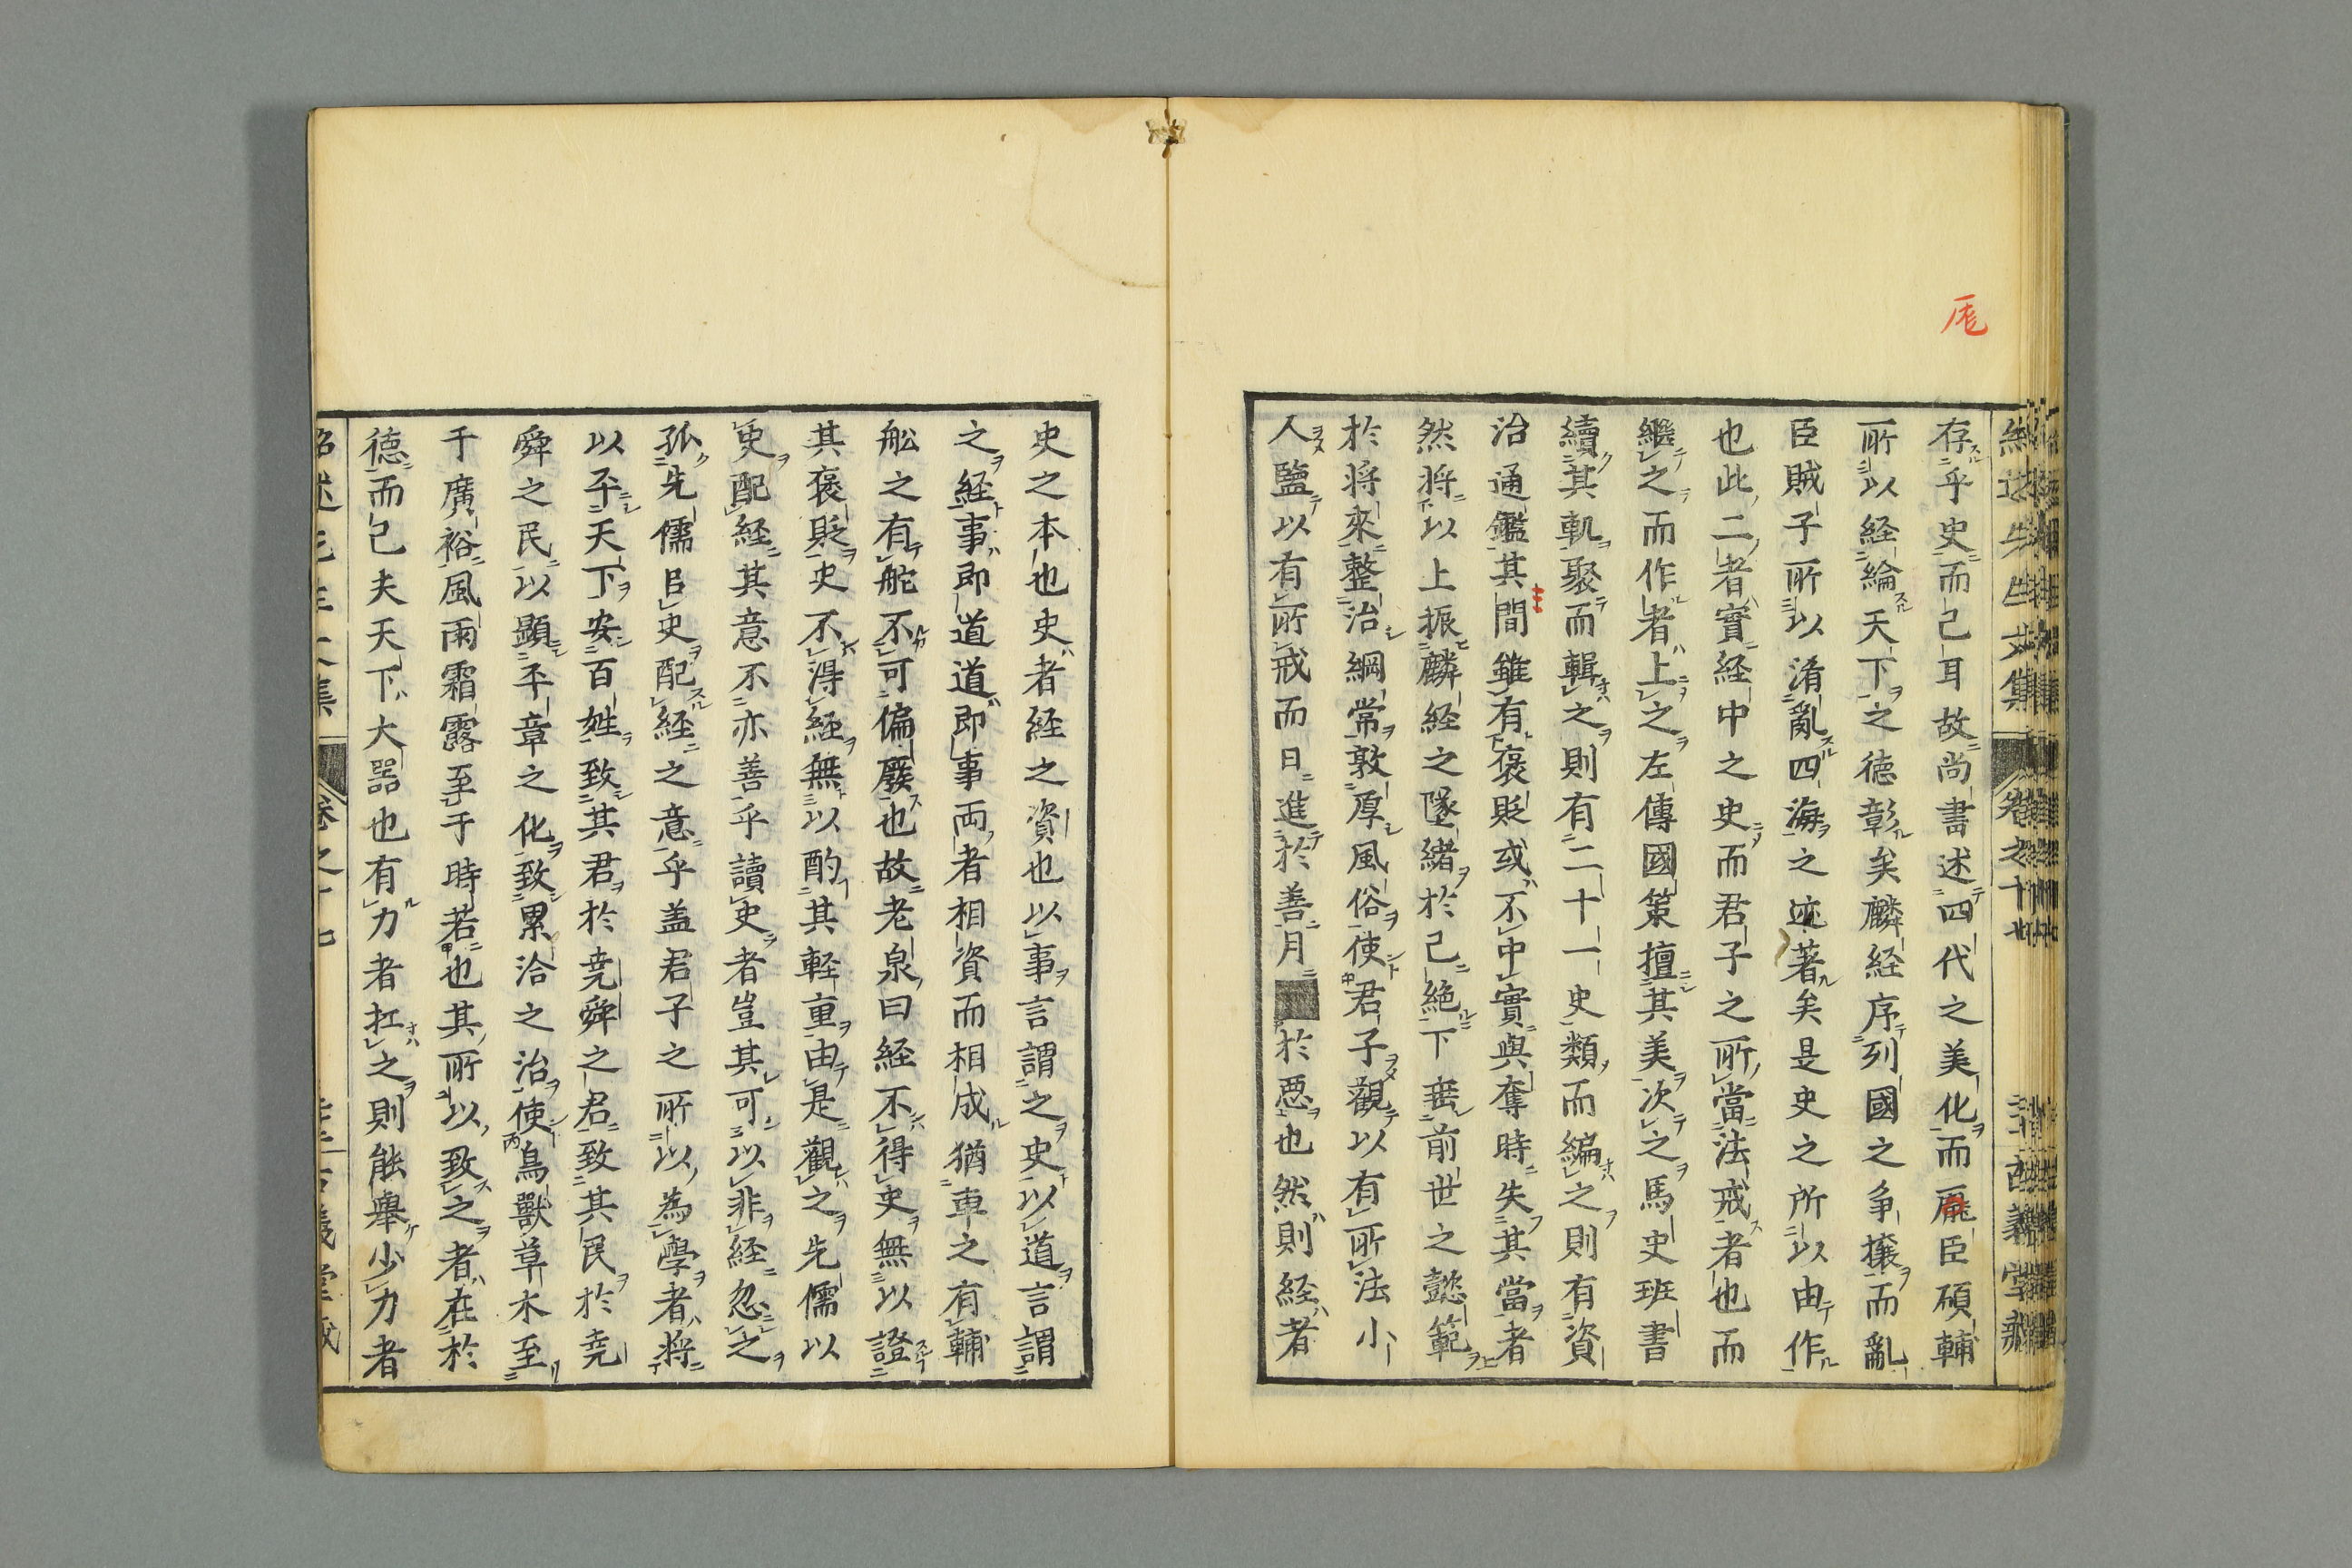 厖
存乎史而已耳故尚書述四代之美化而厖臣碩輔
所以経綸天下之德彰矣麟経序列國之争攘而亂
臣賊子所以淆亂四海之迹著矣是史之所以由作
也此二者實経中之史而君子之所當法戒者也而
繼之而作者上之左傳國策擅其美次之馬史班書
續其軌聚而輯之則有二十一史類而編之則有資
治通鑑其間雖有褒貶或不中實與奪時失其當者
然將以上振麟経之墜緒於已絶下垂前世之懿範
於將來整治綱常敦厚風俗使君子觀以有所法小
人鹽以有所戒而日進於善月■於惡也然則経者
史之本也史者経之資也以事言謂之史以道言謂
之経事即道道即事両者相資而相成猶車之有輔
舩之有舵不可偏廢也故老泉曰経不得史無以證
其褒貶史不得経無以酌其軽重由是觀之先儒以
史配経其意不亦善乎讀史者豈其可以非経忽之
孤先儒㠯史配経之意乎盖君子之所以為學者將
以平天下安百姓致其君於尭舜之君致其民於尭
舜之民以顯平章之化致累洽之治使鳥獸草木至
于廣裕風雨霜露至于時若也其所以致之者在於
德而已夫天下大器也有力者扛之則能舉少力者
紹述先生文集 卷之十七 古義堂蔵